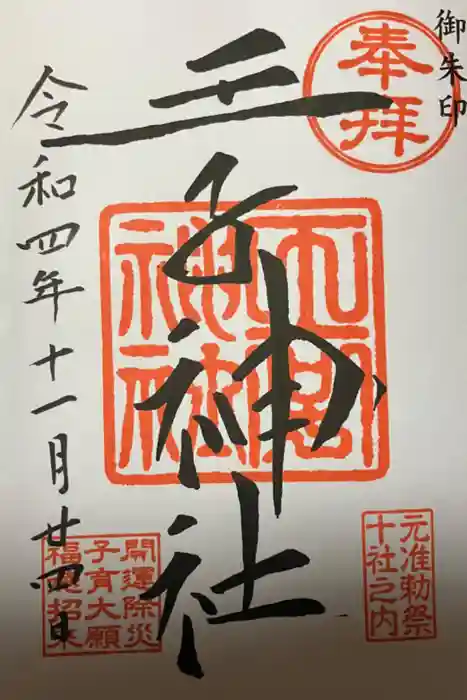 御朱印
奉拝
王子神社
王子
神社
元准勅祭
十社之内
令和四年十一月廿四日
開運除災
子育大願
福徳招来